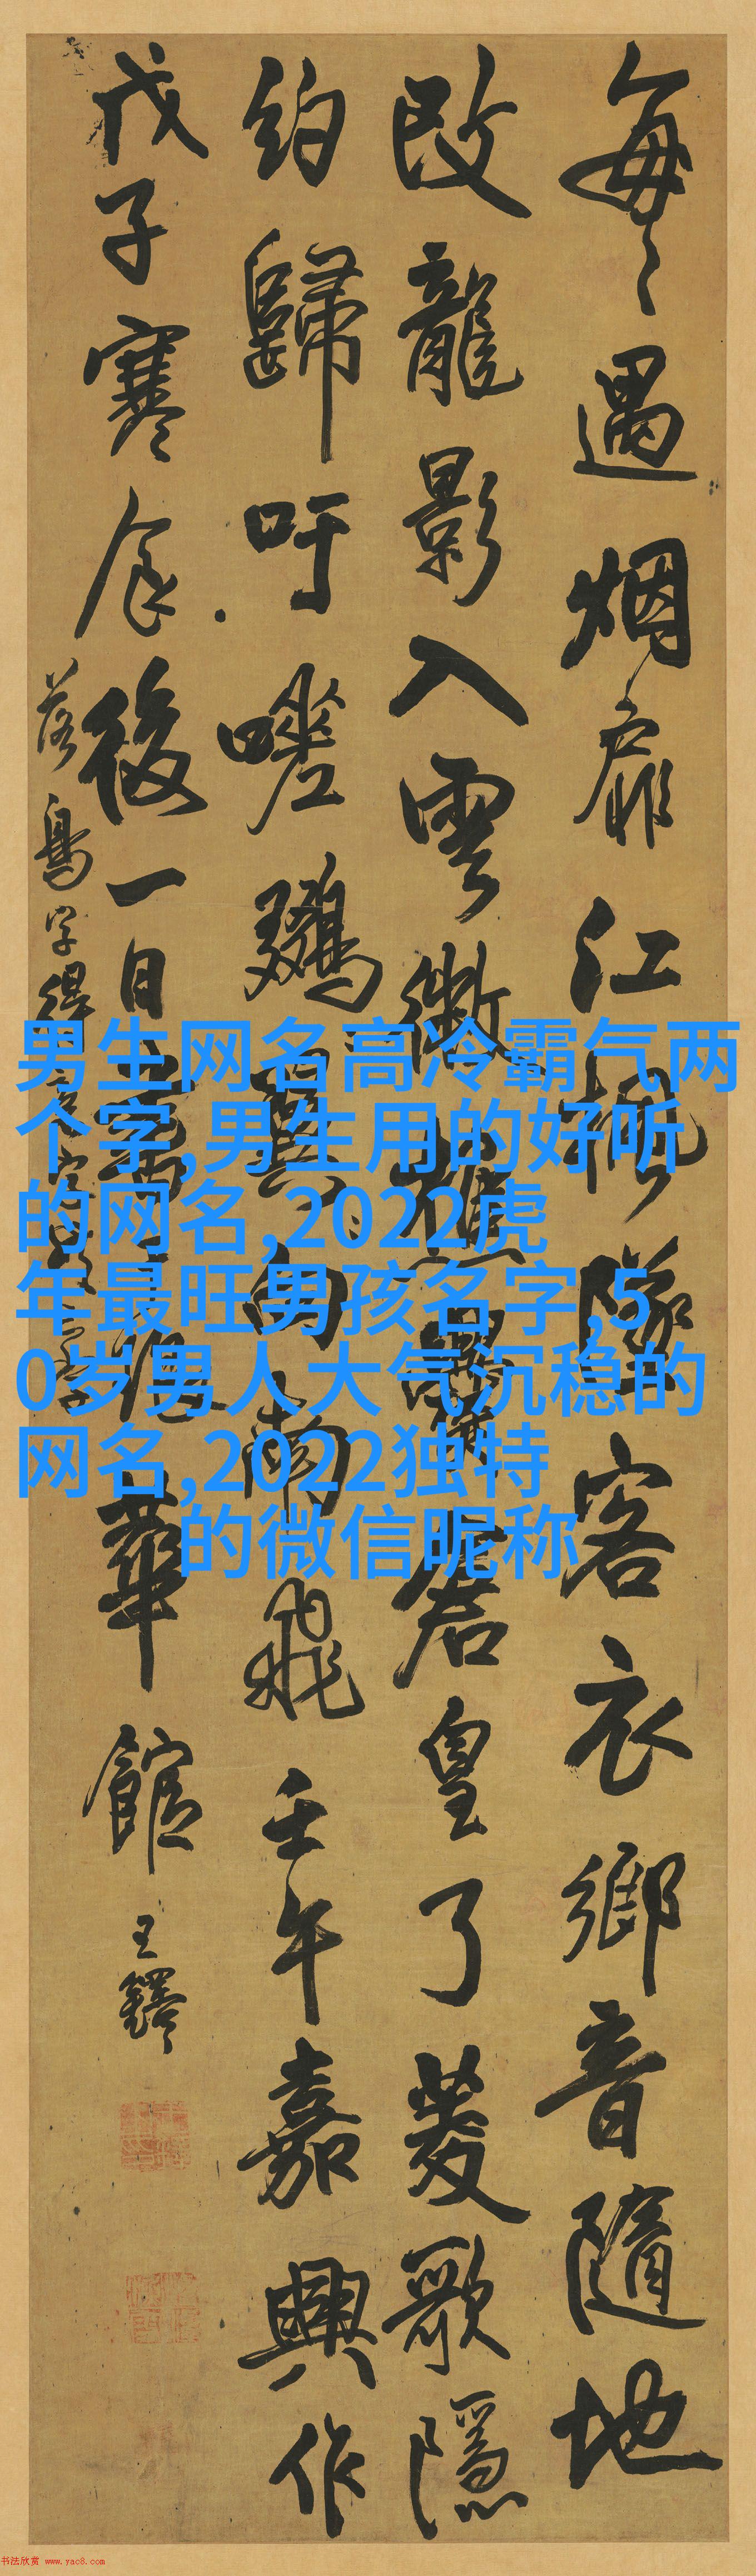 每〻遇烟扉江楓隊客衣鄉音隨地
改龍影入雲
君皇了菱歌隱
約歸吁嗟鵝
向南飛壬午嘉興作
戊子寒食後一日
華館王鐸
落鳥字得
男生网名高冷霸气两
个字,男生用的好听
的网名,2022虎
年最旺男孩名字,5
0岁男人大气沉稳的
网名,2022独特
的微信昵称
书法欣赏 www.yac8.com